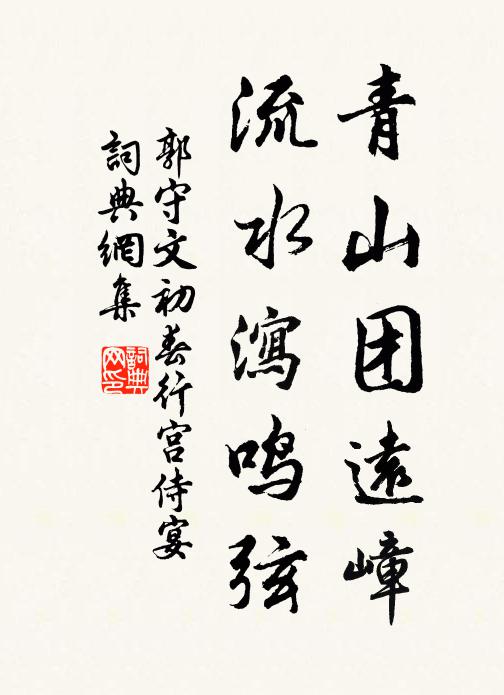 青山团遠嶂
流水瀉鸣弦
郭守文初春行宫侍宴
詞典網集
詞典网印